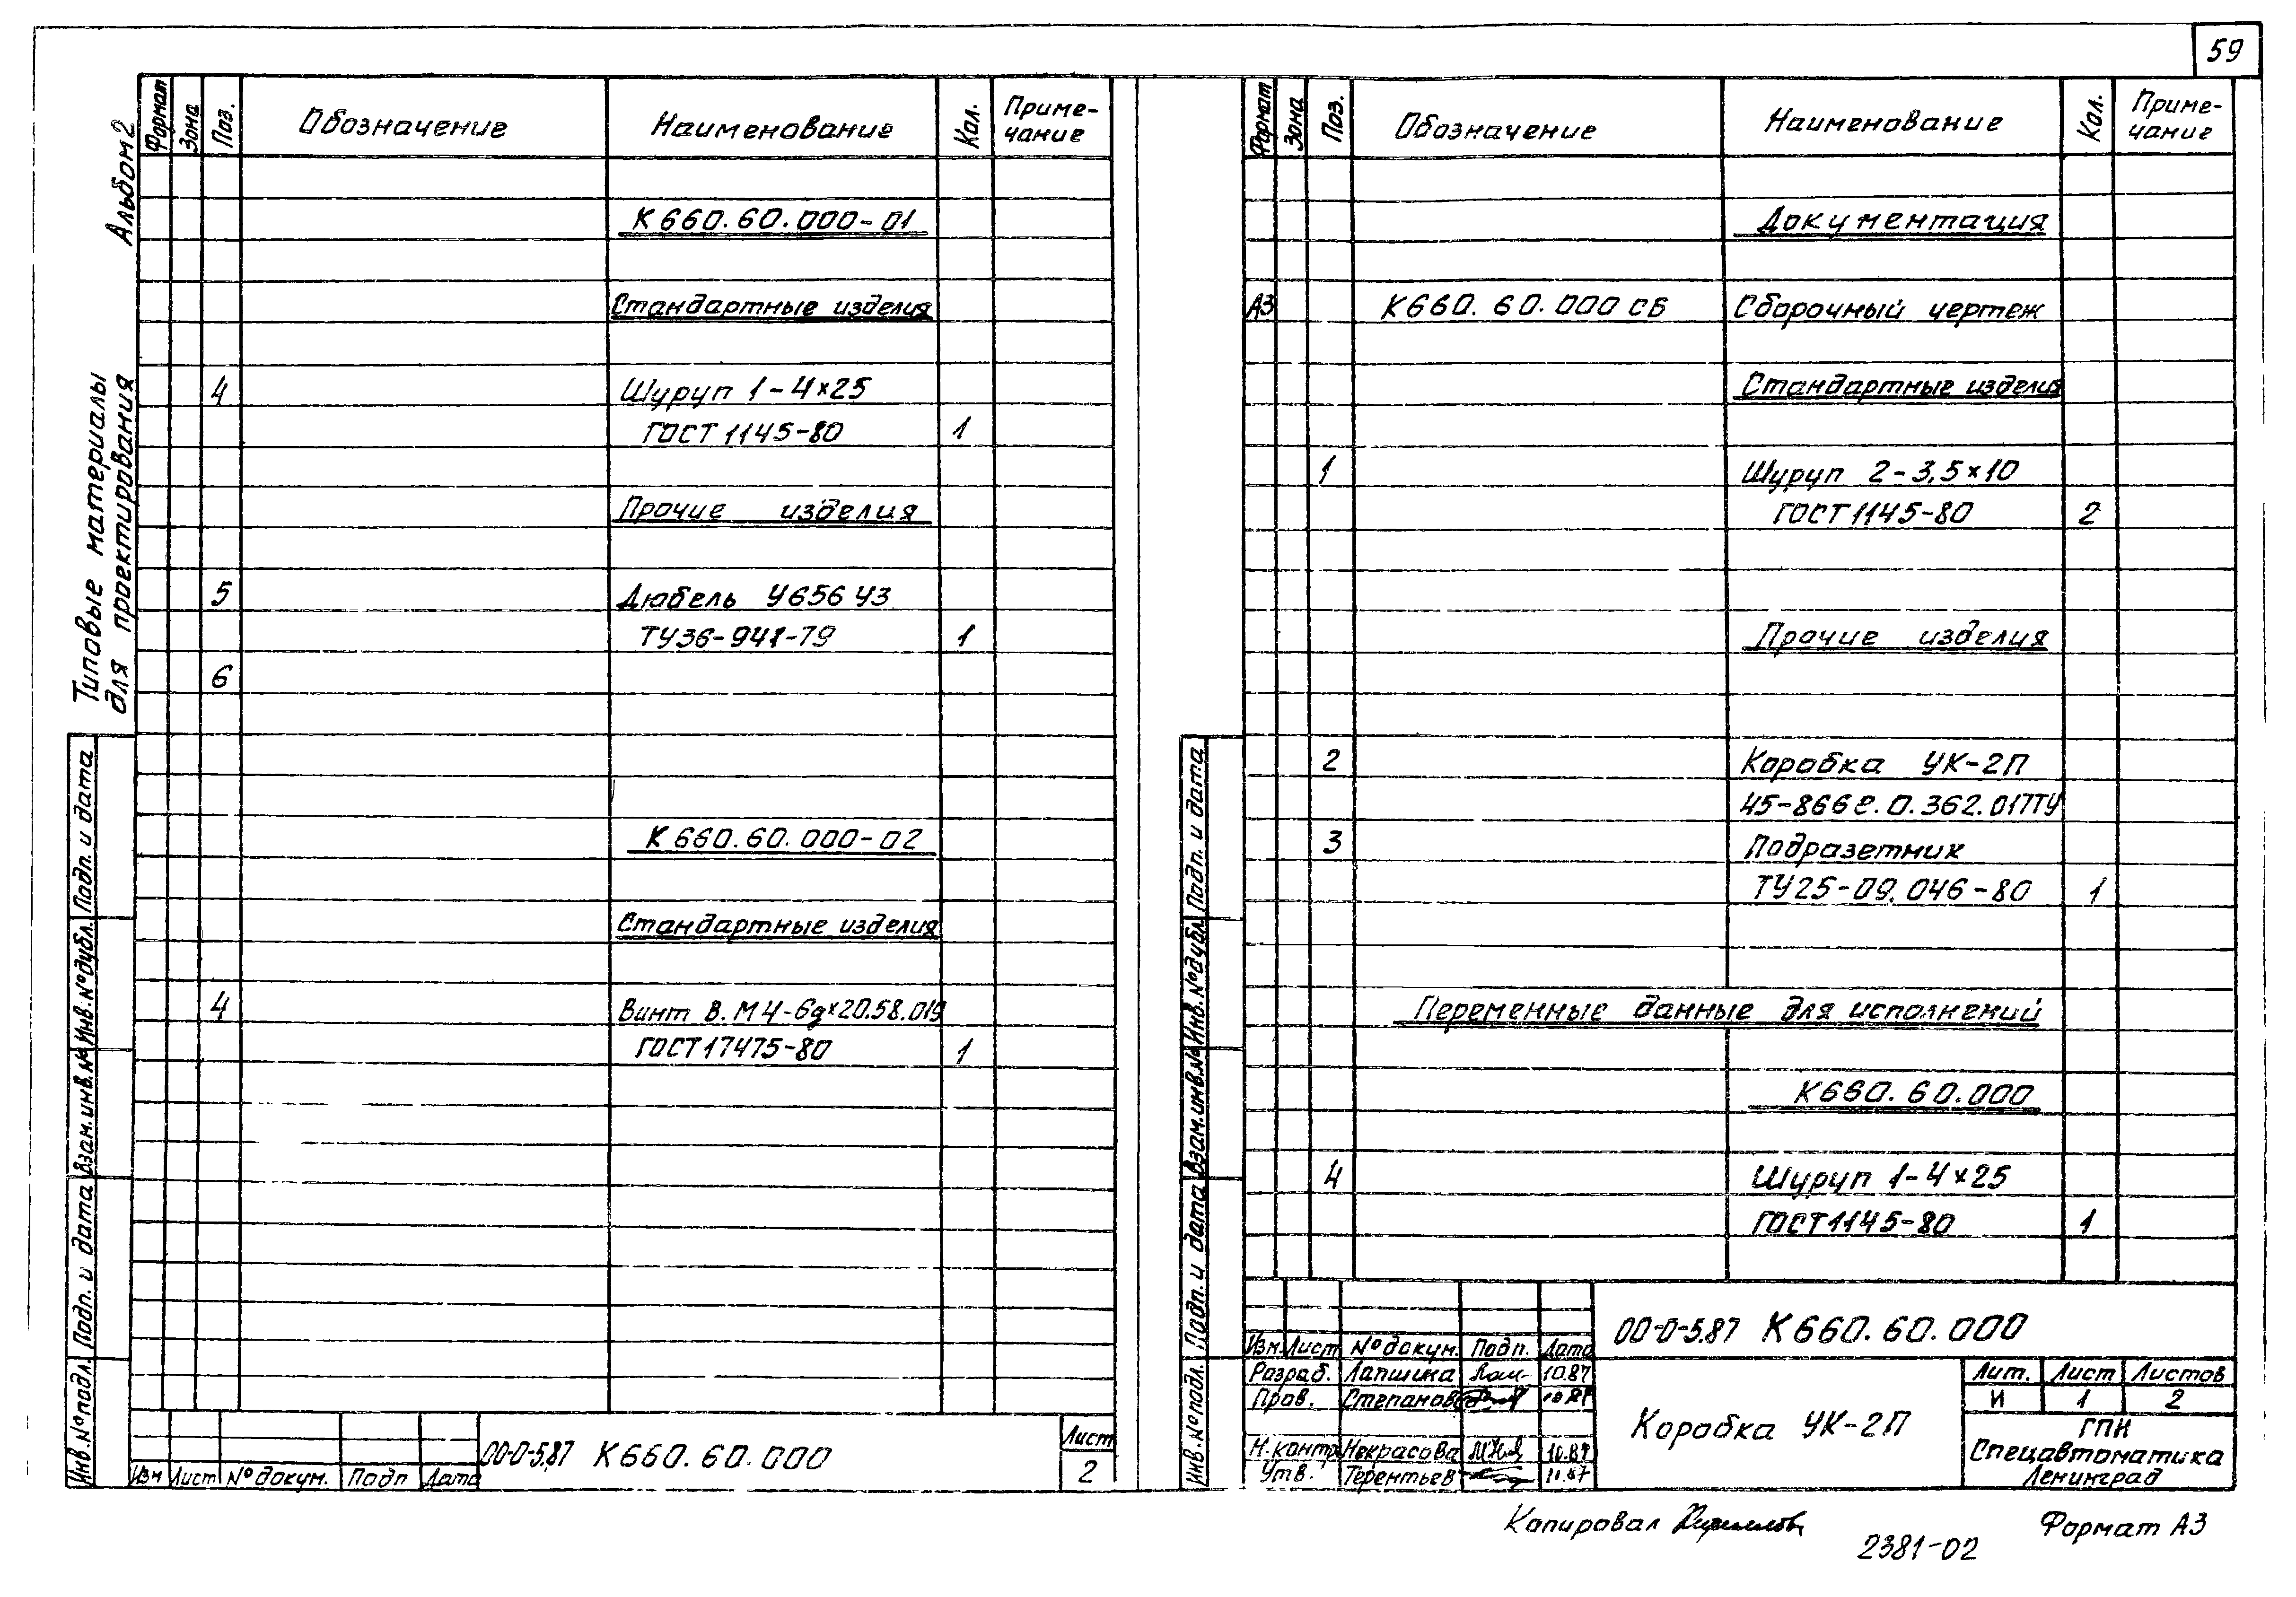 59
Альбом 2
Типовые материалы
для проектирования
Формат Зона Поз. Обозначение Наименование Кол. Приме-
чание
К660.60.000-01
Стандартные изделия
4 Шуруп 1-4×25
ГОСТ 1145-80 1
Прочие изделия
5 Дюбель У656 У3
ТУ36-941-79 1
6
К660.60.000-02
Стандартные изделия
4 Винт В.М4-6g×20.58.019
ГОСТ 17475-80 1
Инв.№подл. Подп. и дата Взам.инв.№ Инв.№дубл. Подп. и дата
Изм Лист № докум. Подп Дата
00-0-5.87 К660.60.000
Лист
2
Формат Зона Поз. Обозначение Наименование Кол. Приме-
чание
Документация
А3 К660.60.000 СБ Сборочный чертеж
Стандартные изделия
1 Шуруп 2-3,5×10
ГОСТ 1145-80 2
Прочие изделия
2 Коробка УК-2П
45-866е.0.362.017ТУ
3 Подразетник
ТУ25-09.046-80 1
Переменные данные для исполнений
К660.60.000
4 Шуруп 1-4×25
ГОСТ 1145-80 1
Инв.№подл. Подп. и дата Взам.инв.№ Инв.№дубл. Подп. и дата
00-0-5.87 К660.60.000
Изм. Лист № докум. Подп. Дата
Разраб. Лапшина 10.87
Пров. Степанов 10.87
Н.контр. Некрасова 10.87
Утв. Терентьев 10.87
Коробка УК-2П
Лит. Лист Листов
И 1 2
ГПИ
Спецавтоматика
Ленинград
Копировал
Формат А3
2381-02